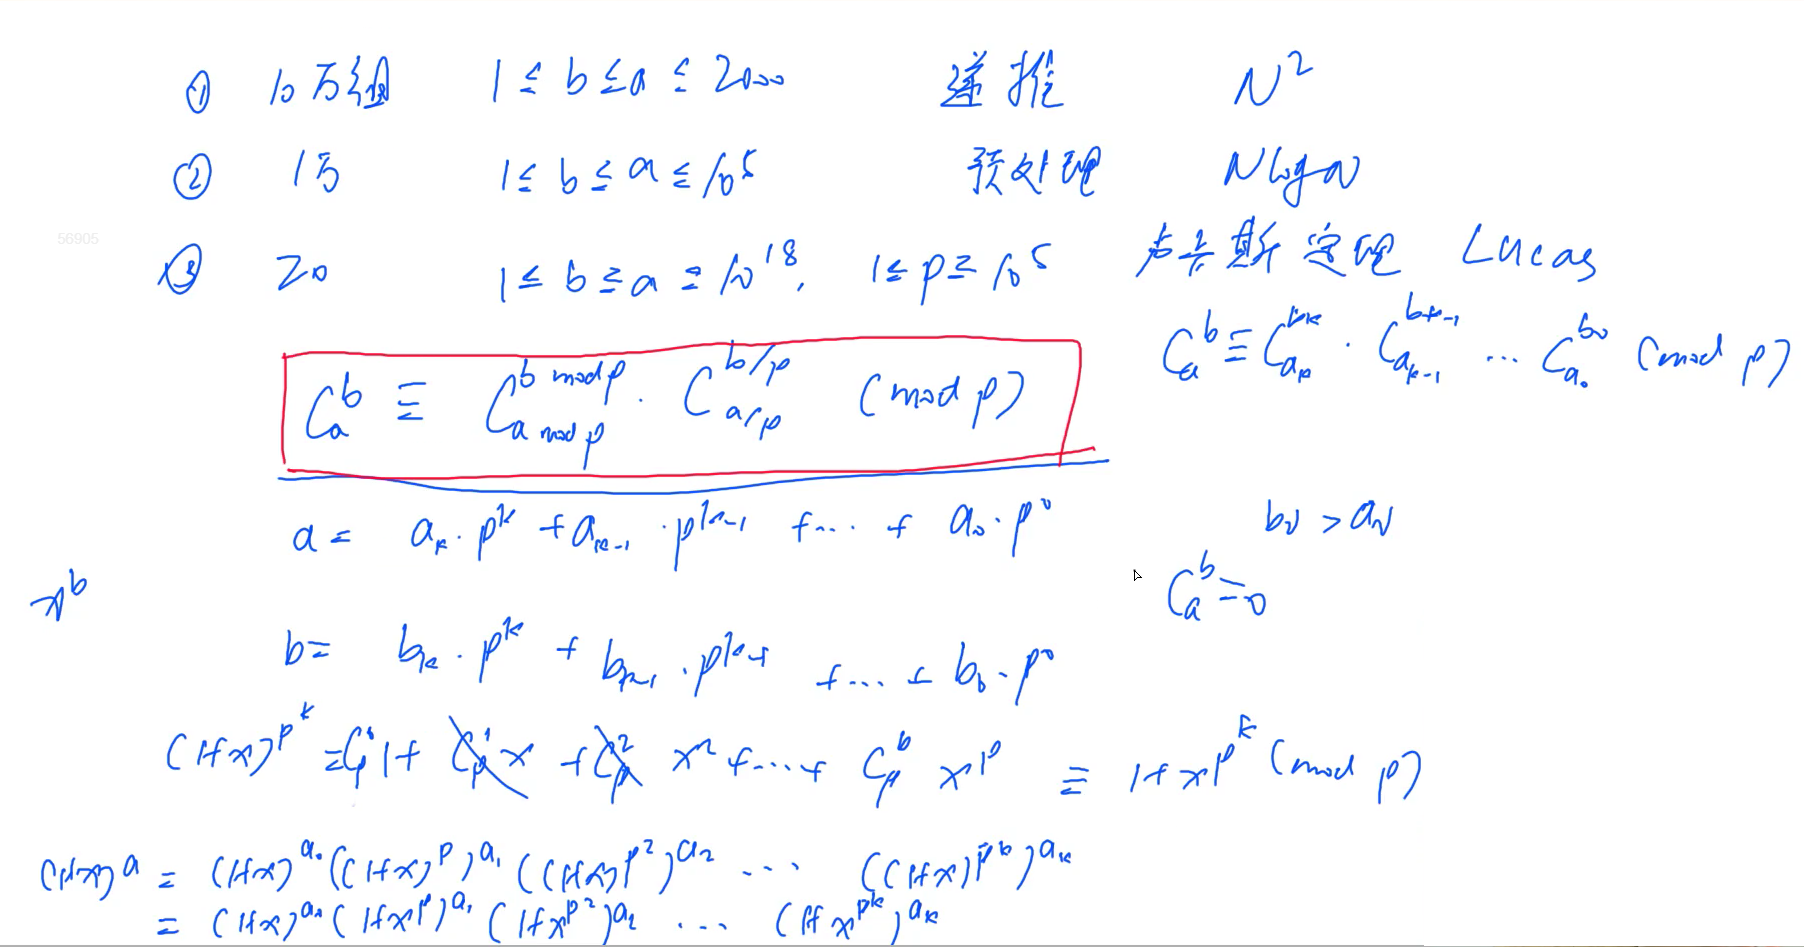 ① 10万组 1 ≤ b ≤ a ≤ 2000 递推 N²
② 1万 1 ≤ b ≤ a ≤ 10⁵ 预处理 NlogN
56905
③ 20 1 ≤ b ≤ a ≤ 10¹⁸, 1 ≤ p ≤ 10⁵ 卢卡斯定理 Lucas
C_a^b ≡ C_{a_k}^{b_k} · C_{a_{k-1}}^{b_{k-1}} ... C_{a_0}^{b_0} (mod p)
C_a^b ≡ C_{a mod p}^{b mod p} · C_{a/p}^{b/p} (mod p)
a = a_k · p^k + a_{k-1} · p^{k-1} + ... + a_0 · p^0
C_a^b = 0
x^b
b = b_k · p^k + b_{k-1} · p^{k-1} + ... + b_0 · p^0
(1+x)^{p^k} ≡ 1 + C_p^1 x + C_p^2 x^2 + ... + x^p ≡ 1 + x^{p^k} (mod p)
(1+x)^a = (1+x)^{a_0} ((1+x)^p)^{a_1} ((1+x)^{p^2})^{a_2} ... ((1+x)^{p^k})^{a_k}
= (1+x)^{a_0} (1+x^p)^{a_1} (1+x^{p^2})^{a_2} ... (1+x^{p^k})^{a_k}